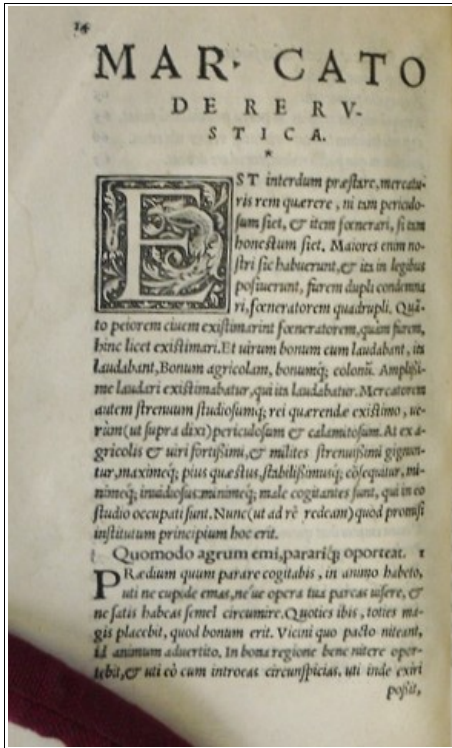 14
MAR. CATO
DE RE RV-
STICA.
*
EST interdum præstare, mercatu-
ris rem quærere, ni tam periculo-
sum siet, & item fœnerari, si tam
honestum siet. Maiores enim no-
stri sic habuerunt, & ita in legibus
posiuerunt, furem dupli condemna
ri, fœneratorem quadrupli. Quā-
to peiorem ciuem existimarint fœneratorem, quàm furem,
hinc licet existimari. Et uirum bonum cum laudabant, ita
laudabant, Bonum agricolam, bonumq; colonū. Amplissi-
me laudari existimabatur, qui ita laudabatur. Mercatorem
autem strenuum studiosumq; rei quærendæ existimo, ue-
rùm (ut supra dixi) periculosum & calamitosum. At ex a-
gricolis & uiri fortissimi, & milites strenuissimi gignun-
tur, maximeq́; pius quæstus, stabilissimusq; cōsequatur, mi-
nimeq́; inuidiosus: minimeq; male cogitantes sunt, qui in eo
studio occupati sunt. Nunc (ut ad rē redeam) quod promisi
institutum principium hoc erit.
Quomodo agrum emi, parariq́; oporteat. 1
PRædium quum parare cogitabis, in animo habeto,
uti ne cupide emas, ne'ue opera tua parcas uisere, &
ne satis habeas semel circumire. Quoties ibis, toties ma-
gis placebit, quod bonum erit. Vicini quo pacto niteant,
id animum aduertito. In bona regione bene nitere opor-
tebit, & uti eò cum introeas circunspicias, uti inde exiri
possit,